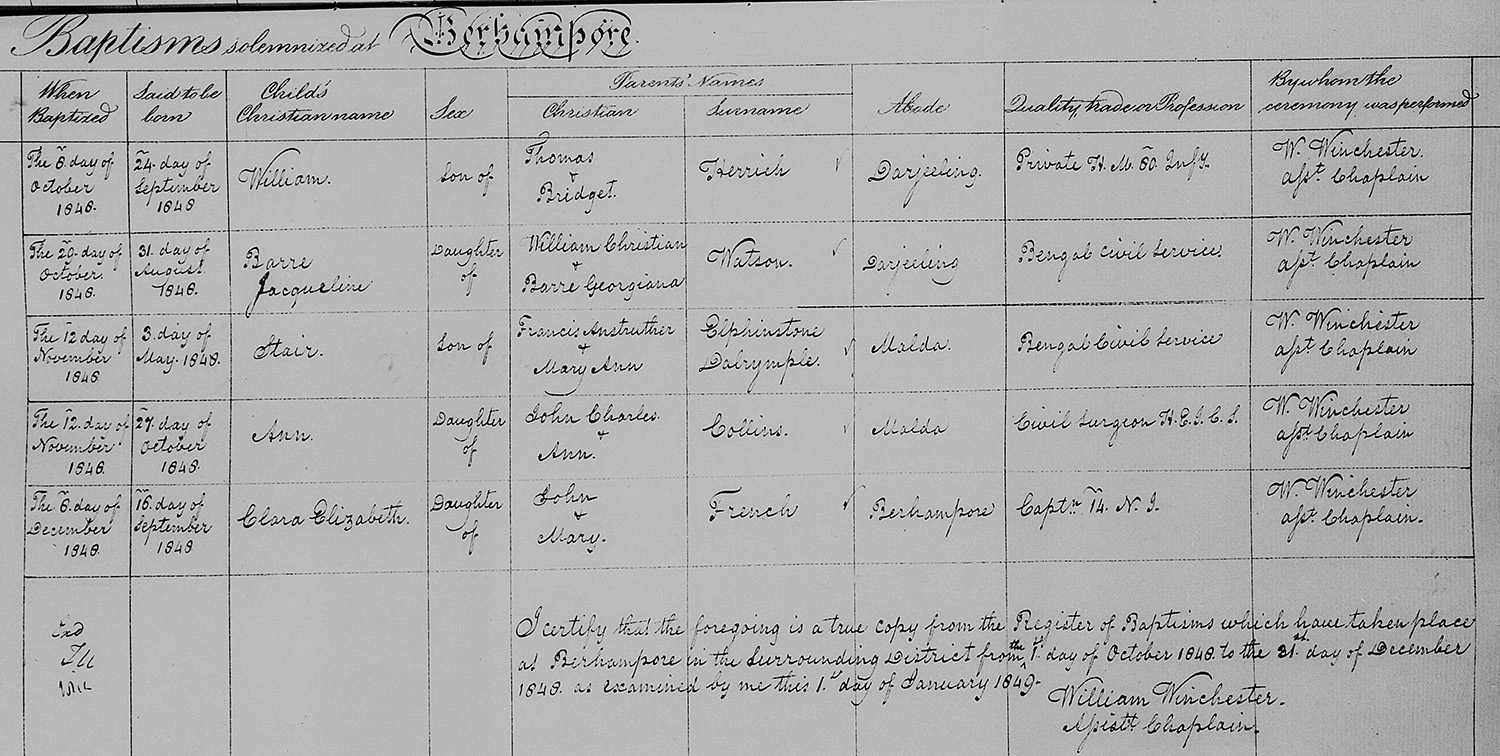 Baptisms solemnized at Berhampore.
Parents' Names
When Baptized
Said to be born
Child's Christian name
Sex
Christian
Surname
Abode
Quality, trade or Profession
By whom the ceremony was performed
The 8. day of
October
1848.
24. day of
September
1848
William.
Son of
Thomas
&
Bridget.
Herrich
Darjeeling.
Private H. M. 80. Inf.y.
W. Winchester.
asst. Chaplain
The 20. day of
October.
1848.
31. day of
August
1848.
Barre
Jacqueline
Daughter
of
William Christian
&
Barré Georgiana
Watson.
Darjeeling
Bengal Civil Service.
W. Winchester
asst. Chaplain
The 12 day of
November
1848.
3. day of
May. 1848.
Stair.
Son of
Francis Anstruther
&
Mary Ann
Elphinstone
Dalrymple.
Malda.
Bengal Civil Service
W. Winchester
asst. Chaplain
The 12. day of
November
1848.
27. day of
October
1848.
Ann.
Daughter
of
John Charles.
&
Ann.
Collins.
Malda
Civil Surgeon H. E. I. C. S.
W. Winchester
asst. Chaplain
The 6. day of
December
1848.
16. day of
September
1848
Clara Elizabeth.
Daughter
of
John
&
Mary.
French
Berhampore
Captn. 14. N. I.
W. Winchester
asst. Chaplain.
I certify that the foregoing is a true copy from the Register of Baptisms which have taken place
at Berhampore in the Surrounding District from the 1st. day of October 1848 to the 31st. day of December
1848. as examined by me this 1st. day of January 1849-
William Winchester.
Assistt. Chaplain.